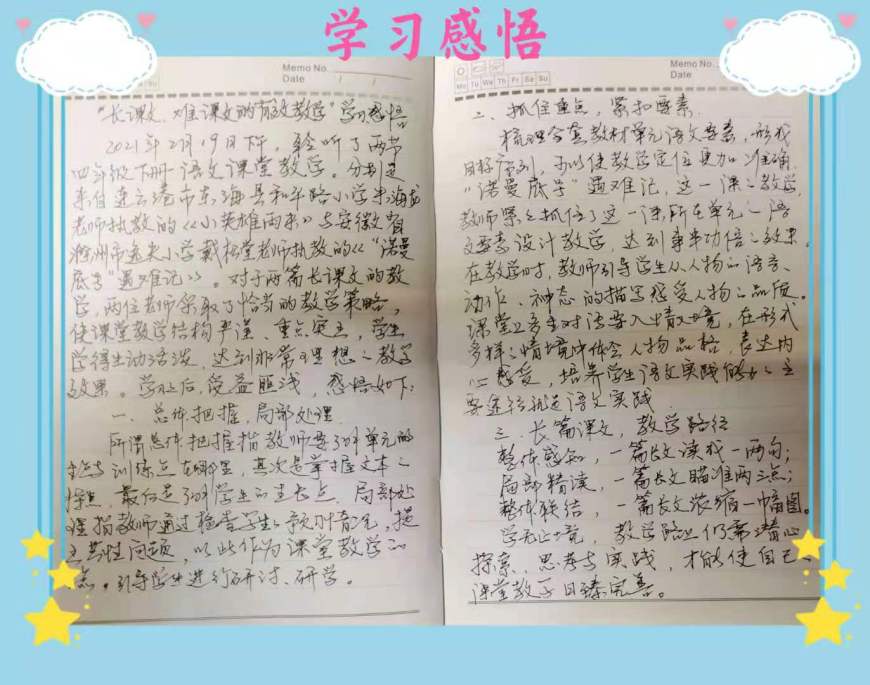 学习感悟
Memo No.
Date / /
"长课文、难课文的有效教学"学习感悟
2021年2月19日下午，聆听了两节
四年级下册语文课堂教学。分别是
来自连云港市东海县和平路小学朱海龙
老师执教的《小英雄雨来》与安徽省
滁州市逸夫小学戴松堂老师执教的《"诺曼
底号"遇难记》。对于两篇长课文的教
学，两位老师采取了恰当的教学策略，
使课堂教学结构严谨、重点突出，学生
学得生动活泼，达到非常理想之教学
效果。学习后，受益匪浅，感悟如下：
一、总体把握，局部处理
所谓总体把握指教师要了解单元的
训练点在哪里，其次是掌握文本之
特点，最后是了解学生的生长点。局部处
理指教师通过检查学生的预习情况，提
出共性问题，以此作为课堂教学的
点。引导学生进行研讨、研学。
Memo No.
Date
Mo Tu We Th Fr Sa Su
二、抓住重点，紧扣要素
梳理全套教材单元语文要素，形成
目标序列，可以使教学定位更加准确。
"诺曼底号"遇难记，这一课的教学，
教师紧紧抓住了这一课所在单元的语
文要素设计教学，达到事半功倍之效果。
在教学时，教师引导学生从人物的语言、
动作、神态的描写感受人物的品质。
课堂上多次对话导入情境，在形式
多样的情境中体会人物品格，表达内
心感受，培养学生语文实践能力的主
要途径就是语文实践
三、长篇课文，教学路径
整体感知，一篇长文读成一两句；
局部精读，一篇长文瞄准两三点；
整体联结，一篇长文浓缩一幅图。
学无止境，教学路上仍需潜心
探索、思考与实践，才能使自己的
课堂教学日臻完善。